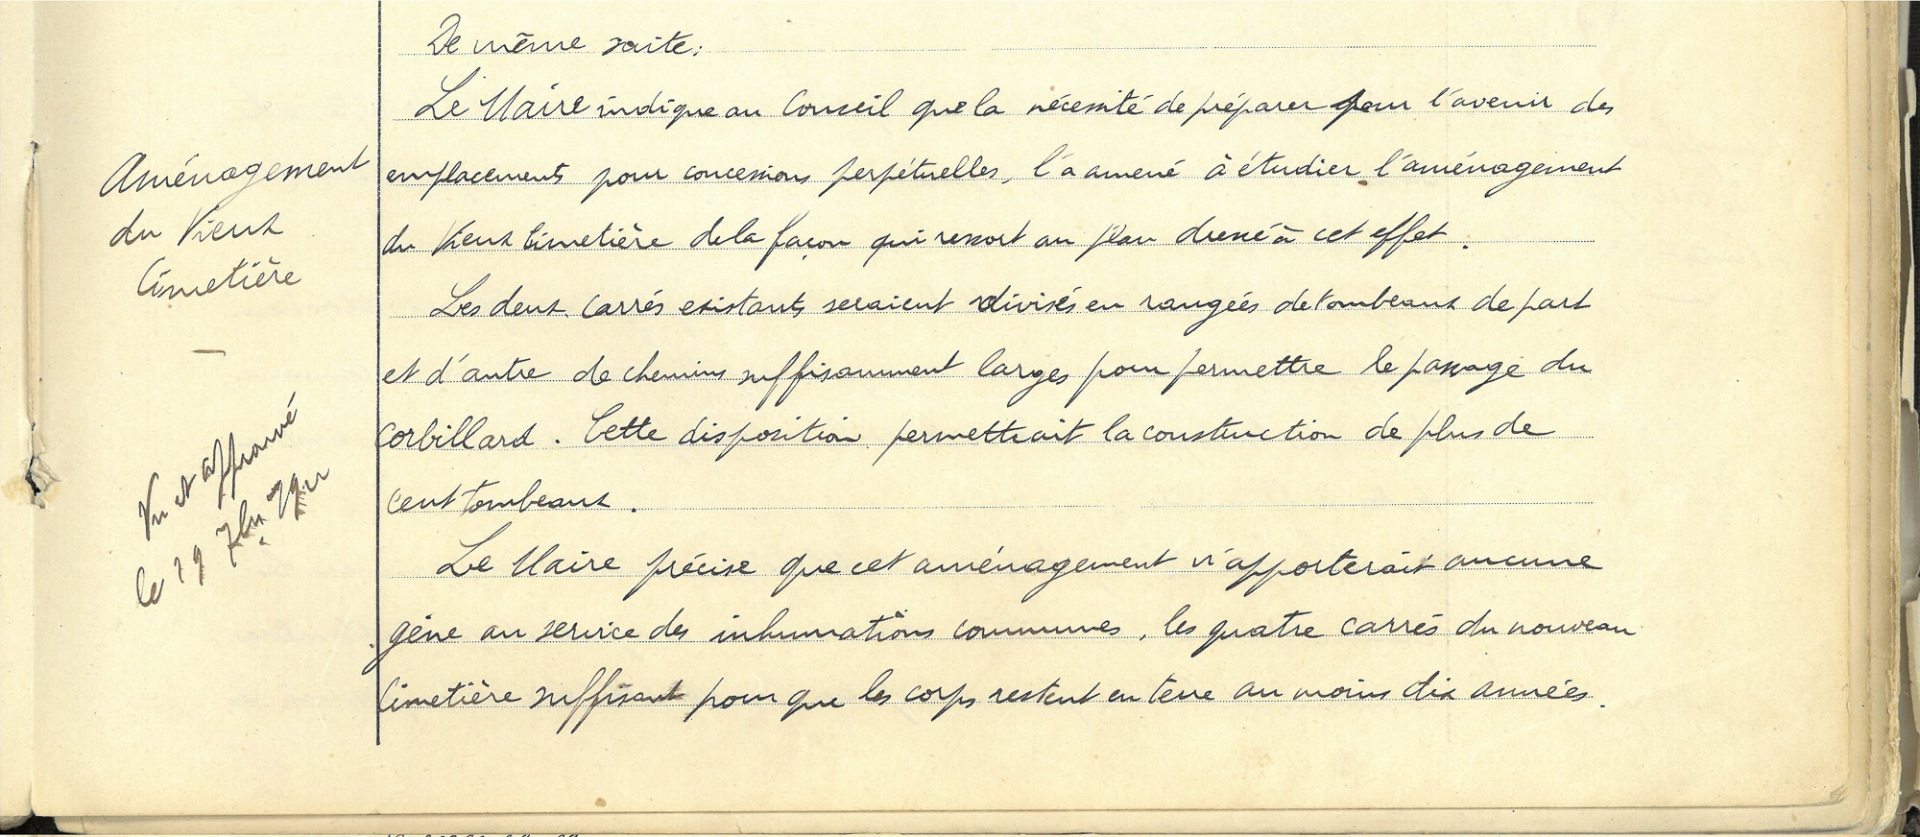 De même suite:
Le Maire indique au Conseil que la nécessité de préparer pour l'avenir des
emplacements pour concessions perpétuelles, l'a amené à étudier l'aménagement
du Vieux Cimetière de la façon qui ressort au plan dressé à cet effet.
Les deux carrés existants seraient divisés en rangées de tombeaux de part
et d'autre de chemins suffisamment larges pour permettre le passage du
corbillard. Cette disposition permettrait la construction de plus de
cent tombeaux.
Le Maire précise que cet aménagement n'apporterait aucune
gène au service des inhumations communes, les quatre carrés du nouveau
Cimetière suffisant pour que les corps restent en terre au moins dix années.
Aménagement
du Vieux
Cimetière
Vu et approuvé
le 19